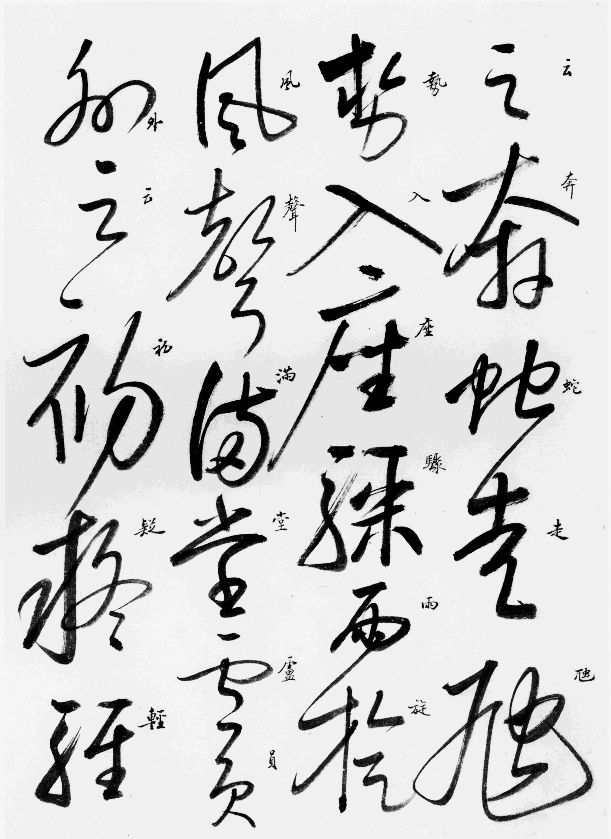 云奔蛇走虺
云奔蛇走虺
勢入座驟雨旋
勢入座驟雨旋
風聲滿堂盧員
風聲滿堂盧員
外云初疑輕
外云初疑輕